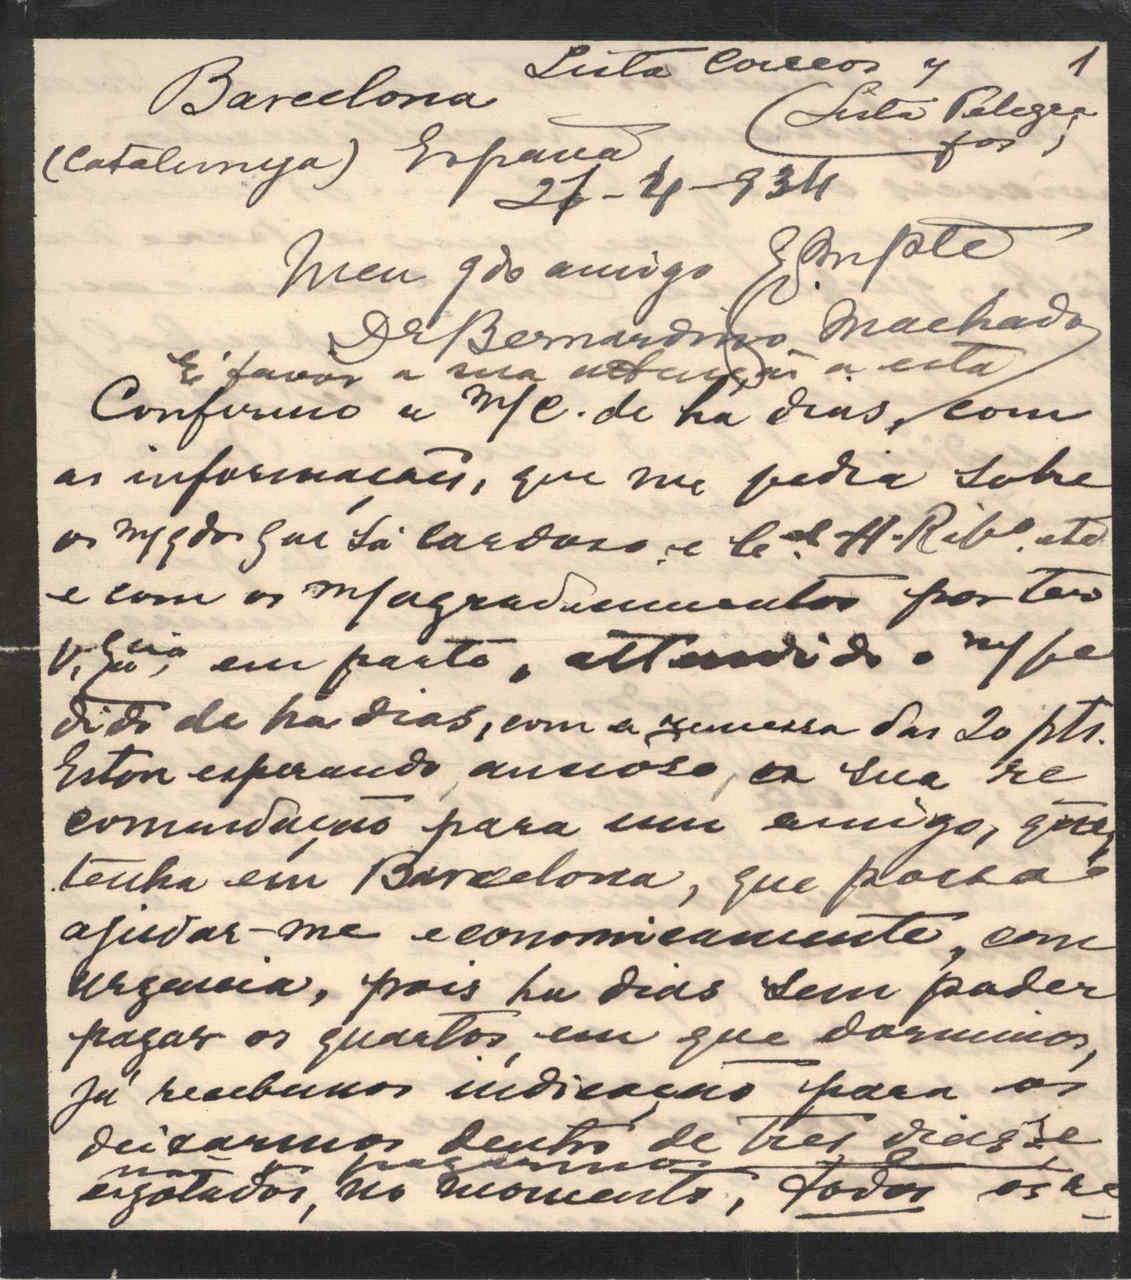 Lista Correos y 1
Barcelona (Lista Telegra
fos)
(Catalunya) España
26-4-934
Meu qdo amigo Exmo Pte
Dr Bernardino Machado
É favor a sua attenção a esta
Confirmo a m/c. de ha dias, com
as informações, que me pedia sobre
os m/qdos Gal Sá Cardoso e Cel H. Ribo. etc
e com os m/agradecimentos por ter
V. Exa, em parte, attendido o m/pe
dido de ha dias, com a remessa das 20 pts.
Estou esperando, ancioso, a sua re
comendação para um amigo, que
tenha em Barcelona, que possa
ajudar-me economicamente, com
urgencia, pois ha dias sem poder
pagar os quartos, em que dormimos,
já recebemos indicação para os
deixarmos dentro de tres dias, se
não os pagarmos
esgotados, no momento, todos os re